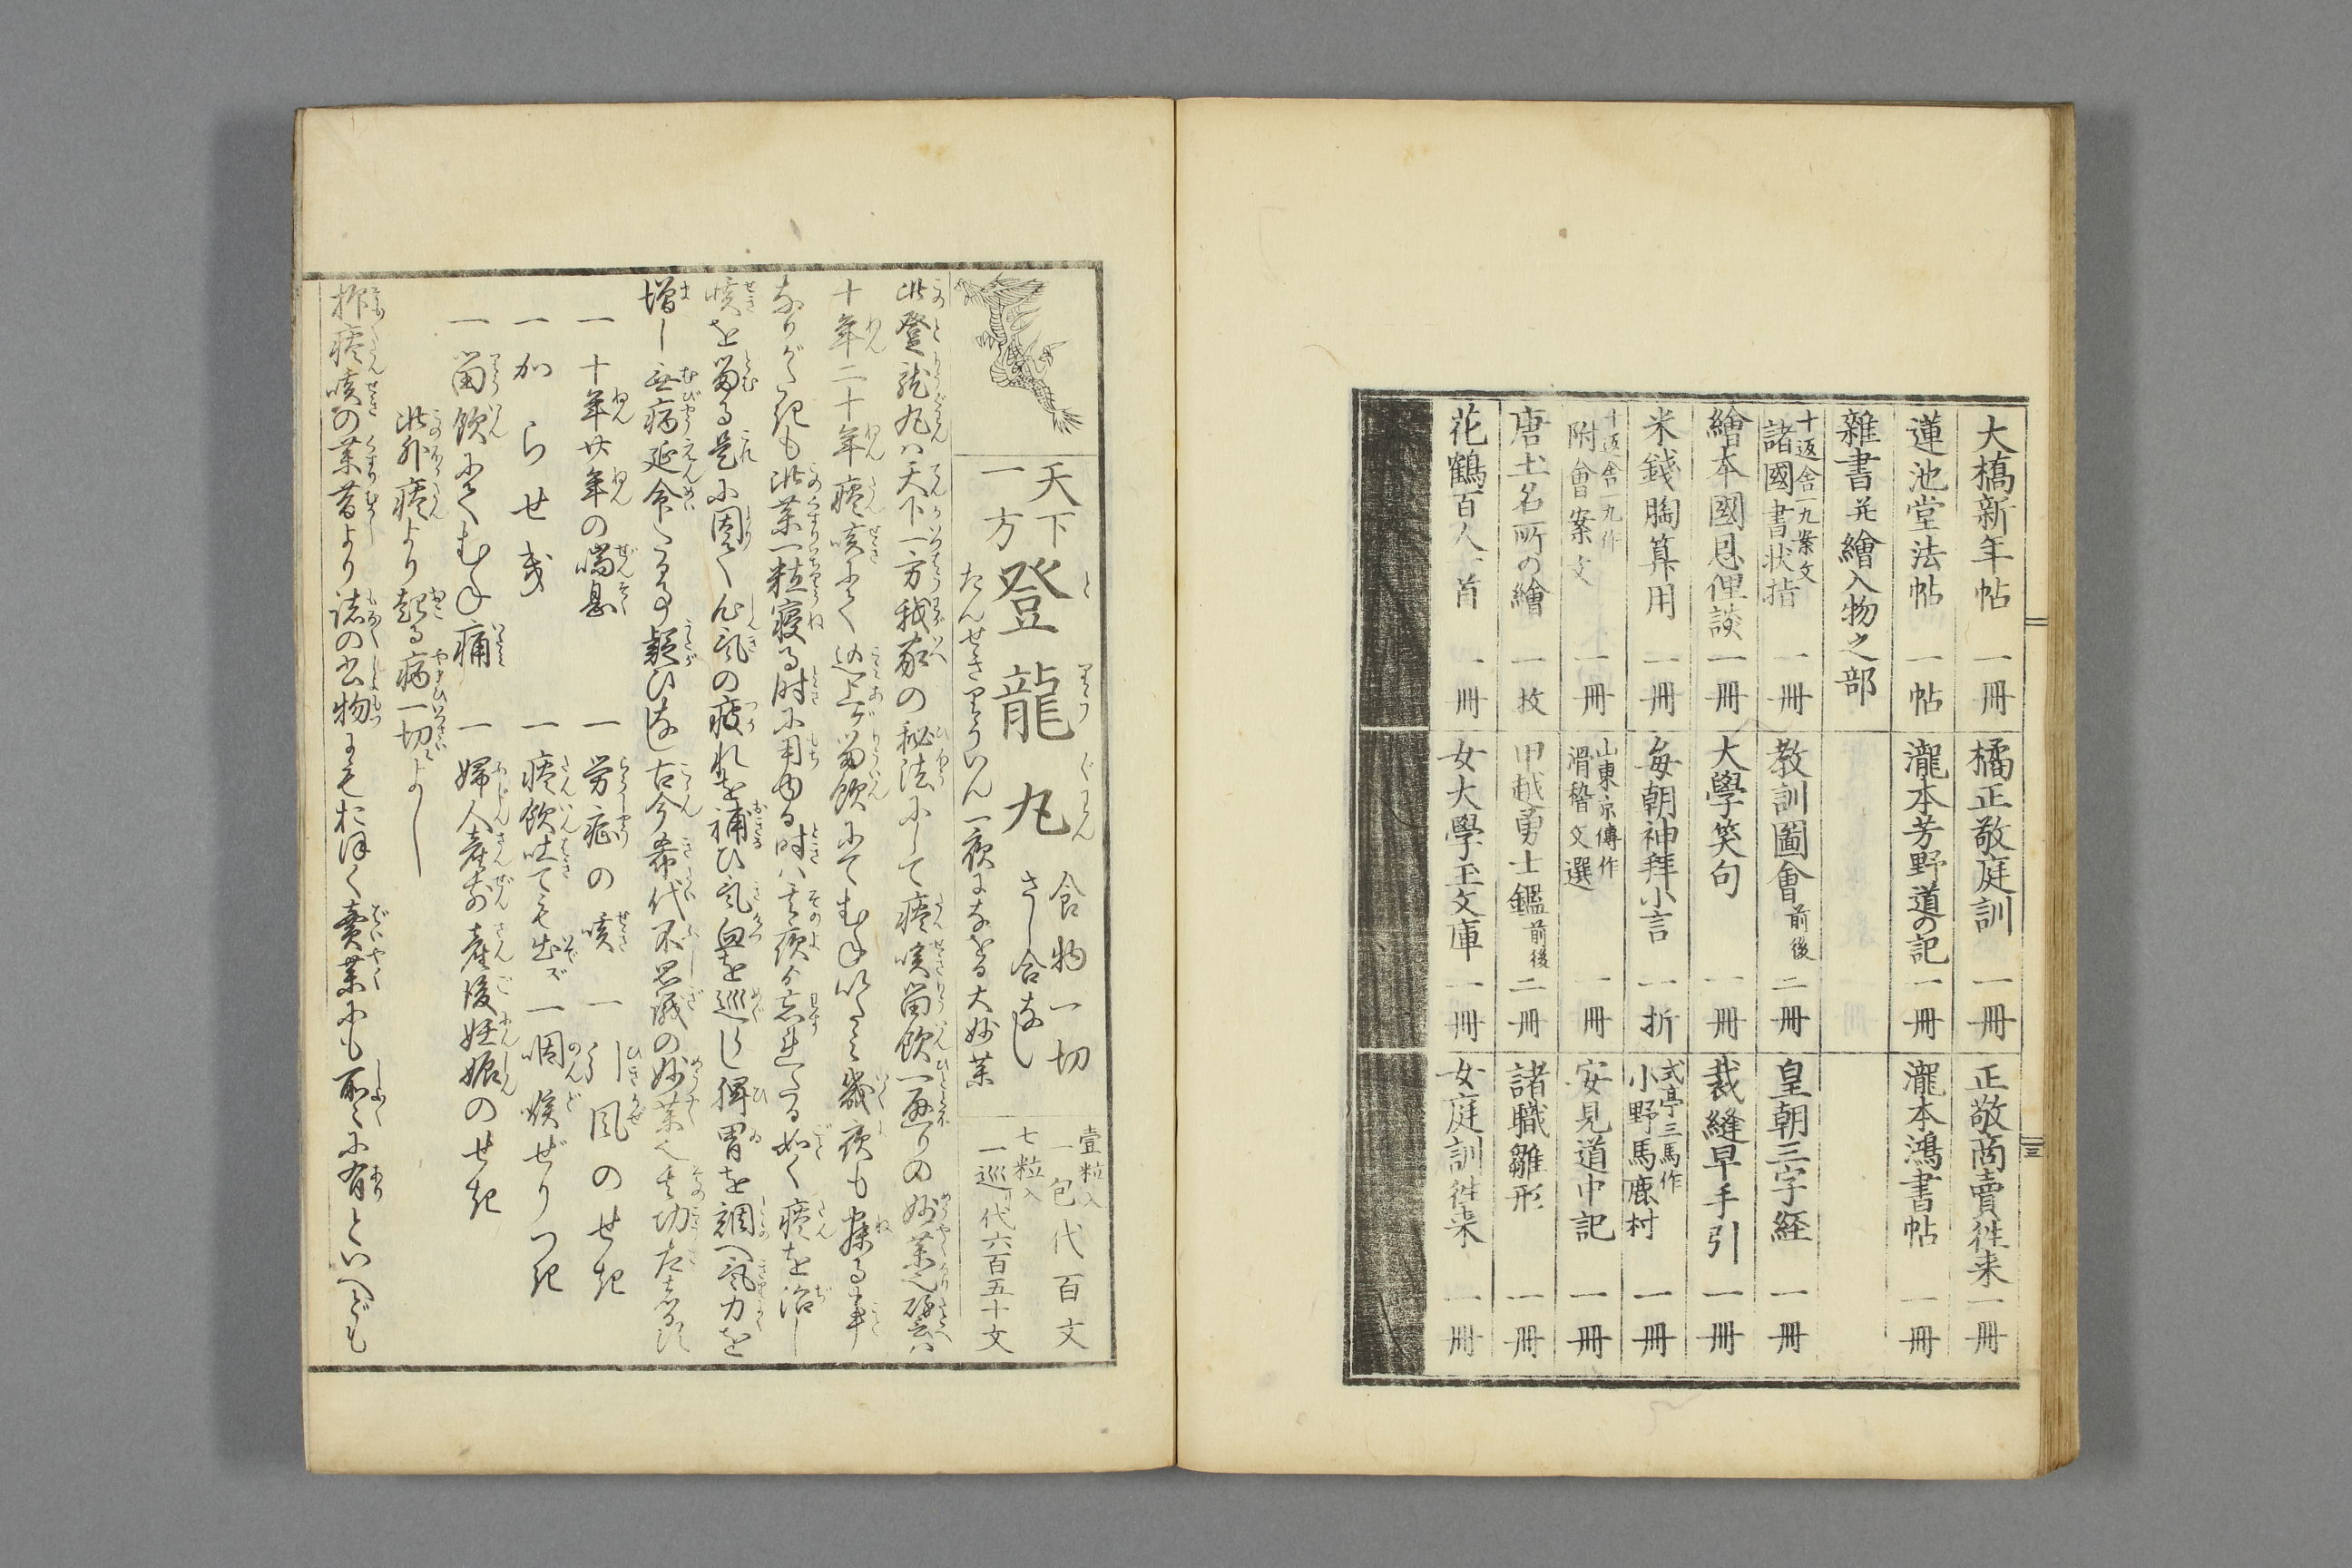 大橋新年帖 一冊
蓮池堂法帖 一帖
雑書并繪入物之部
十返舎一九案文
諸國書状指 一冊
繪本國恩俚談 一冊
米錢胸算用 一冊
十返舎一九作
附會案文 一冊
唐土名所の繪 一枚
花鶴百人一首 一冊
橘正敬庭訓 一冊
瀧本芳野道の記 一冊
教訓圖會 前後 二冊
大學笑句 一冊
毎朝神拝小言 一折
山東京傳作
滑稽文選 一冊
甲越勇士鑑 前後 二冊
女大學玉文庫 一冊
正敬商賣徃来 一冊
瀧本鴻書帖 一冊
皇朝三字経 一冊
裁縫早手引 一冊
式亭三馬作
小野馬鹿村 一冊
安見道中記 一冊
諸職雛形 一冊
女庭訓徃来 一冊
三
天下
一方
登龍丸
と りう ぐわん
食物一切
さし合なし
たんせきりういん一夜になをる大妙薬
壹粒入
一包代百文
七粒入
一巡り代六百五十文
此登龍丸ハ天下一方我家の秘法にして痰咳留飲一通りの妙薬也譬ハ
十年二十年痰咳にて逆上ゲ留飲にてむねいたミ幾夜も寐る事
ならざるも此薬一粒寝る時に用ゆる時ハ其夜より忘れたる如く痰を治し
咳を留る是に因て心気の疲れを補ひ気血を巡らし脾胃を調へ気力を
増し無病延命たる事疑ひなし古今希代不思議の妙薬也其功左に記ス
一 十年廿年の喘息
一 労症の咳
一 引風のせき
一 からせき
一 痰飲吐ても出ズ
一 咽喉ぜりつき
一 留飲にてむね痛
一 婦人産前産後妊娠のせき
此外痰より起る病一切によし
抑痰咳の薬昔より諸の書物にもおほく賣薬にも所々に有といへども